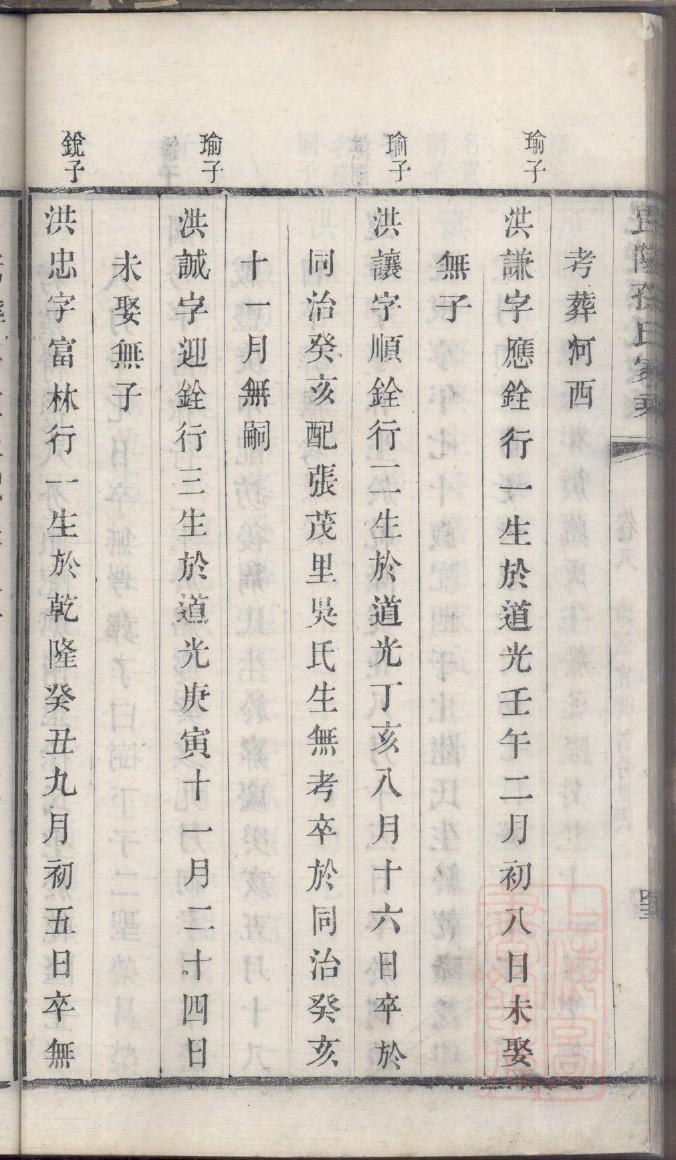 孫氏家乘
卷八
考葬河西
瑜子
洪謙字應銓行一生於道光壬午二月初八日未娶
無子
瑜子
洪讓字順銓行二生於道光丁亥八月十六日卒於
同治癸亥配張茂里吳氏生無考卒於同治癸亥
十一月無嗣
瑜子
洪誠字迎銓行三生於道光庚寅十一月二十四日
未娶無子
銳子
洪忠字富林行一生於乾隆癸丑九月初五日卒無